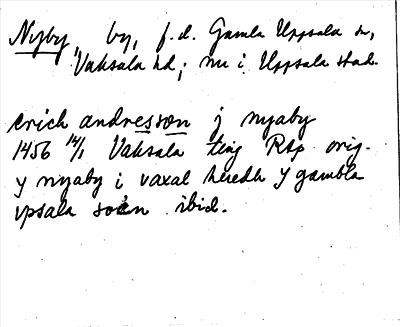 Nyby, by, f.d. Gamla Uppsala sn,
Vaksala hd; nu i Uppsala stad.
erich andresson j nyaby
1456 14/1 Vaksala ting RAp orig.
y nyaby i vaxal heredh y gambla
vpsala sokn ibid.